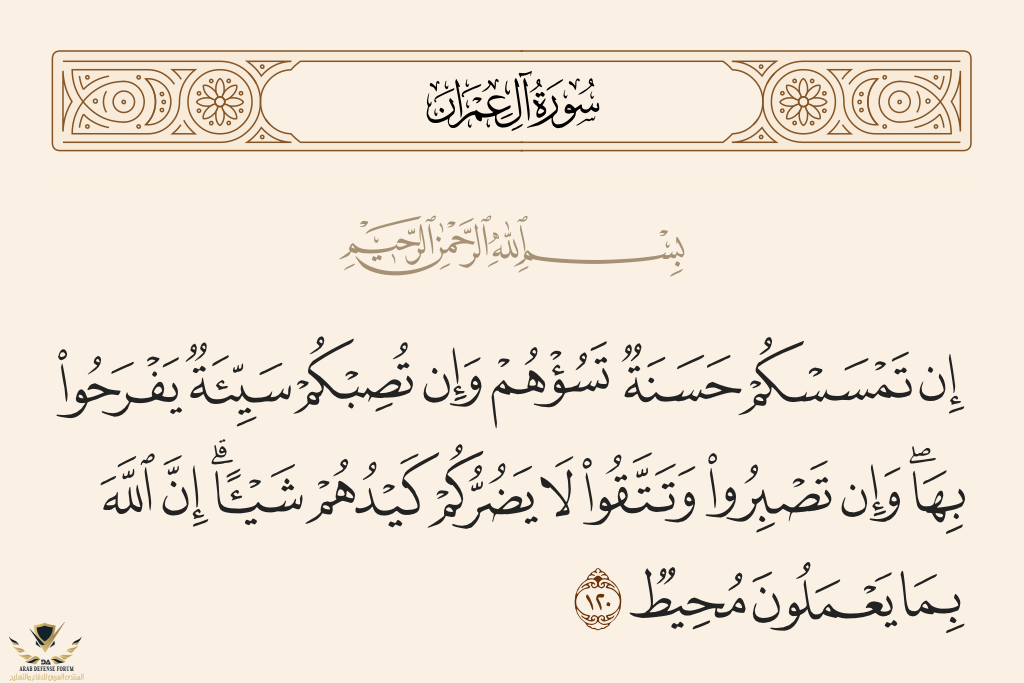 سُورَةُ آلِ عِمْرَان
بِسْمِ ٱللَّهِ ٱلرَّحْمَٰنِ ٱلرَّحِيمِ
إِن تَمْسَسْكُمْ حَسَنَةٌ تَسُؤْهُمْ وَإِن تُصِبْكُمْ سَيِّئَةٌ يَفْرَحُوا۟
بِهَا ۖ وَإِن تَصْبِرُوا۟ وَتَتَّقُوا۟ لَا يَضُرُّكُمْ كَيْدُهُمْ شَيْـًٔا ۗ إِنَّ ٱللَّهَ
بِمَا يَعْمَلُونَ مُحِيطٌ ١٢٠
DA
ARAB DEFENSE FORUM
المنتدى العربي للدفاع والتسليح